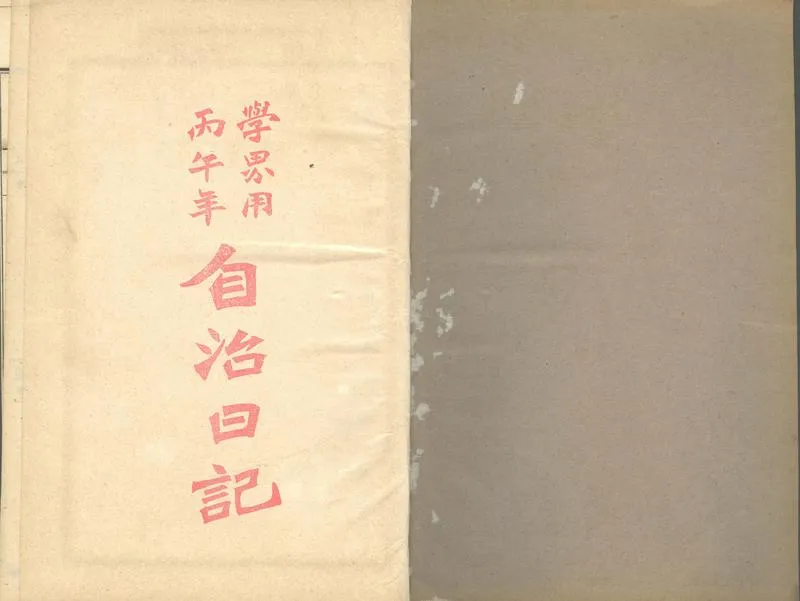 學界用
丙午年
自治日記